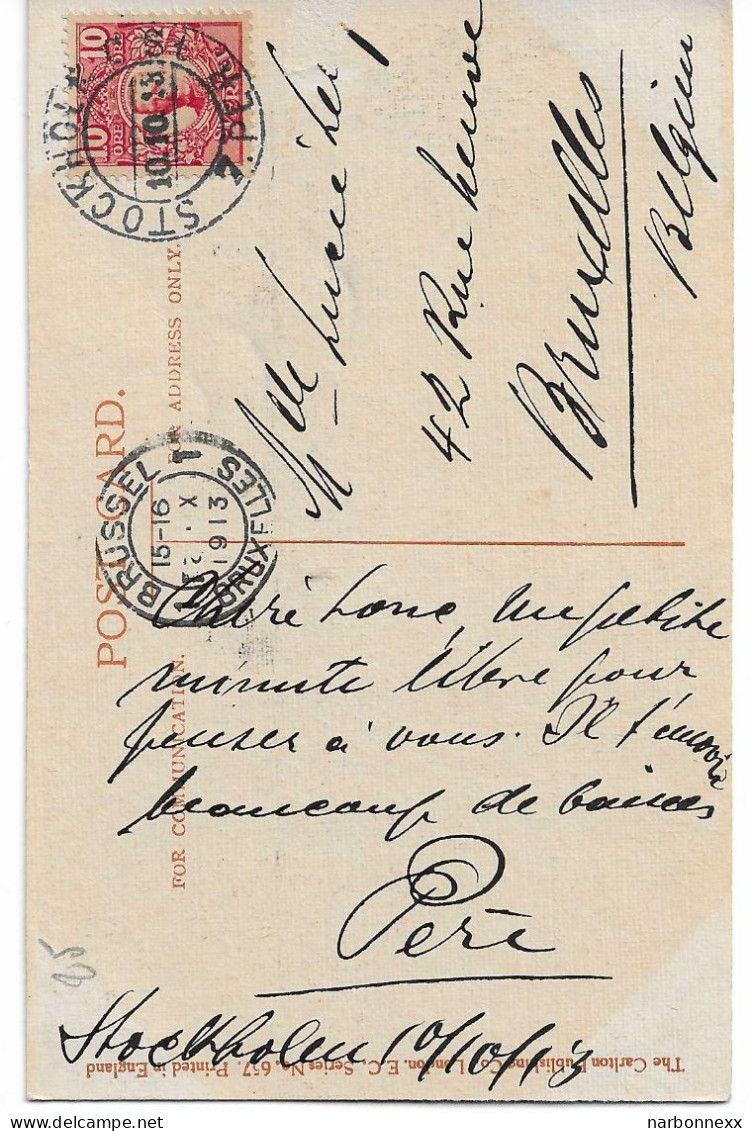 10 ÖRE 10 ÖRE SVERIGE
STOCKHOLM
10.10.13
POSTCARD.
FOR ADDRESS ONLY.
Mlle Lucie
42 Rue
Bruxelles
Belgien
BRUSSEL 1 BRUXELLES
15-16
X
1913
FOR COMMUNICATION.
une petite
minute libre pour
penser à vous. Il t'envoie
beaucoup de
Père
Stockholm 10/10/13
The Carlton Publishing Co., London, E.C. Series No. 657. Printed in England
25
narbonnexx